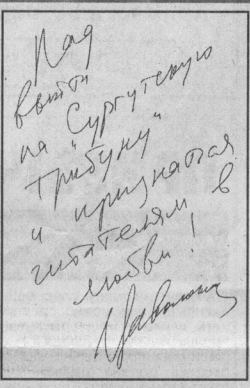 Рад
выйти
на "Сургутскую
трибуну"
и признаться
читателям в
любви!